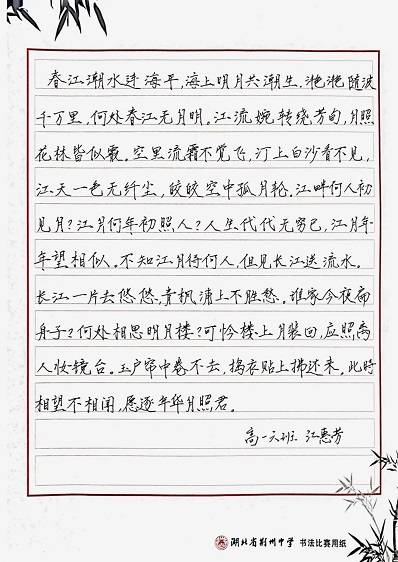 春江潮水连海平,海上明月共潮生.滟滟随波
千万里,何处春江无月明,江流婉转绕芳甸,月照
花林皆似霰。空里流霜不觉飞,汀上白沙看不见,
江天一色无纤尘,皎皎空中孤月轮。江畔何人初
见月?江月何年初照人?人生代代无穷已,江月年
年望相似。不知江月待何人,但见长江送流水。
长江一片去悠悠,青枫浦上不胜愁。谁家今夜扁
身子?何处相思明月楼?可怜楼上月裴回,应照离
人妆镜台。玉户帘中卷不去,捣衣贴上拂还来。此時
相望不相闻,愿逐年华月照君。
高一六班 江惠芳
湖北省荆州中学 书法比赛用纸